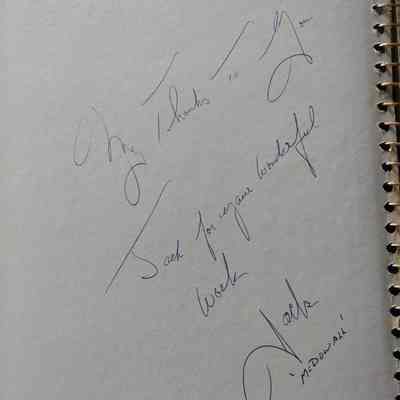 My Thanks To You
Jack for your wonderful
work
Jack
'McDOWALL'